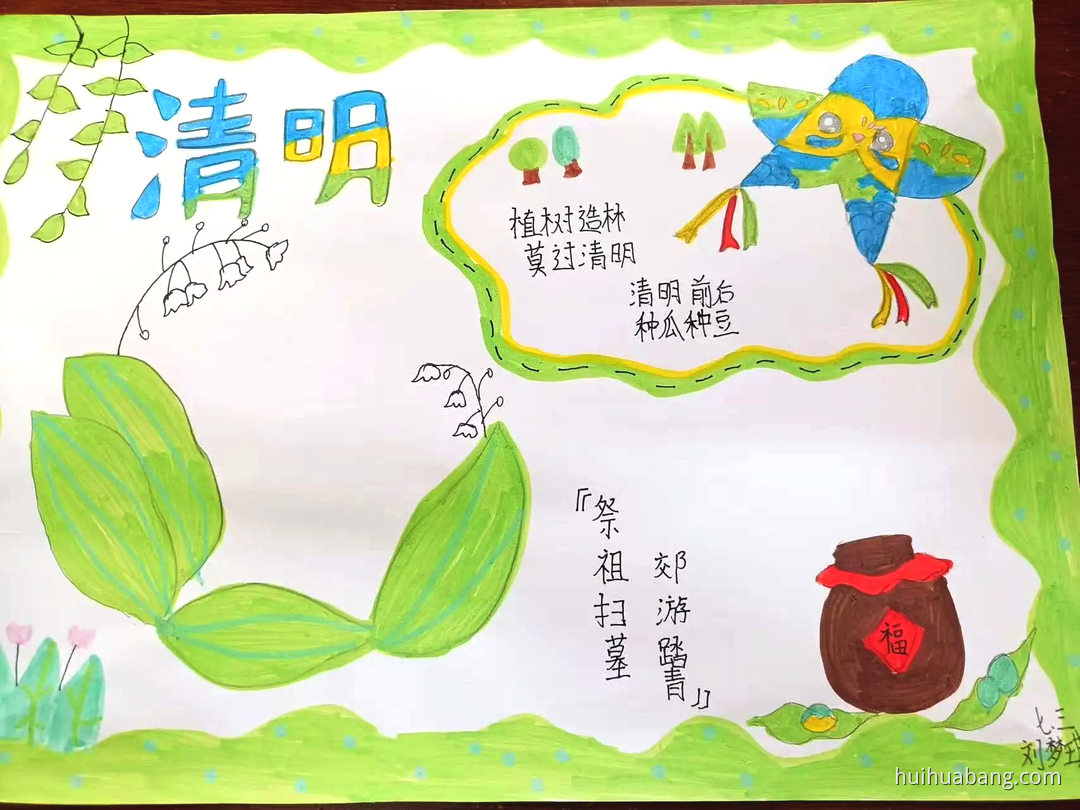 清明
植树造林
莫过清明
清明前后
种瓜种豆
『祭祖扫墓
郊游踏青』
福
七.三
刘梦
huihuabang.com